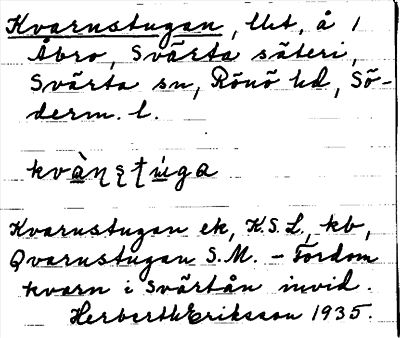 Kvarnstugan, lht, å 1
Åbro, Svärta säteri,
Svärta sn, Rönö hd, Sö-
derm. l.
kvàn̥ʂʈúga
Kvarnstugan ek, K.S.L., kb,
Qvarnstugan S.M. - Fordom
kvarn i Svärtån invid.
Herberth Eriksson 1935.